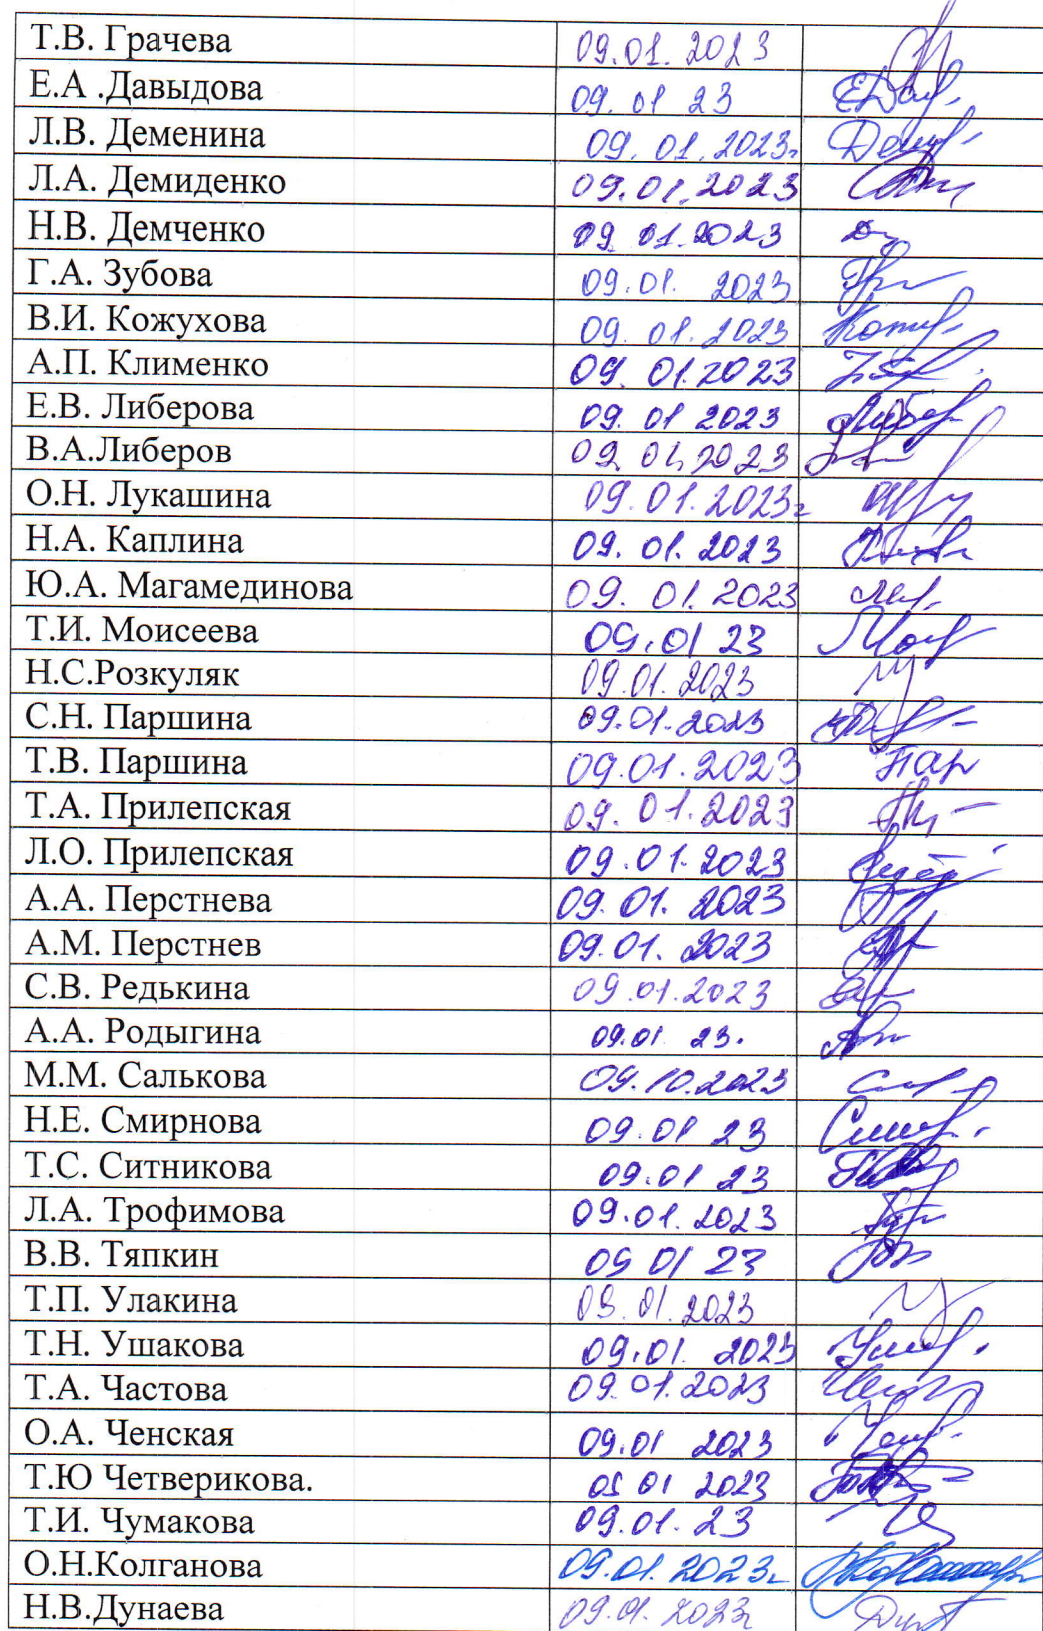 Т.В. Грачева 09.01.2023
Е.А .Давыдова 09.01 23
Л.В. Деменина 09.01.2023г
Л.А. Демиденко 09.01.2023
Н.В. Демченко 09.01.2023
Г.А. Зубова 09.01. 2023
В.И. Кожухова 09.01.2023
А.П. Клименко 09.01.2023
Е.В. Либерова 09.01 2023
В.А.Либеров 09.01.2023
О.Н. Лукашина 09.01.2023г
Н.А. Каплина 09.01.2023
Ю.А. Магамединова 09.01.2023
Т.И. Моисеева 09.01 23
Н.С.Розкуляк 09.01.2023
С.Н. Паршина 09.01.2023
Т.В. Паршина 09.01.2023 Пар
Т.А. Прилепская 09.01.2023
Л.О. Прилепская 09.01.2023
А.А. Перстнева 09.01.2023
А.М. Перстнев 09.01.2023
С.В. Редькина 09.01.2023
А.А. Родыгина 09.01 23.
М.М. Салькова 09.10.2023
Н.Е. Смирнова 09.01 23
Т.С. Ситникова 09.01 23
Л.А. Трофимова 09.01.2023
В.В. Тяпкин 09 01 23
Т.П. Улакина 09.01.2023
Т.Н. Ушакова 09.01. 2023
Т.А. Частова 09.01.2023
О.А. Ченская 09.01 2023
Т.Ю Четверикова. 09 01 2023
Т.И. Чумакова 09.01.23
О.Н.Колганова 09.01.2023г
Н.В.Дунаева 09.01.2023г